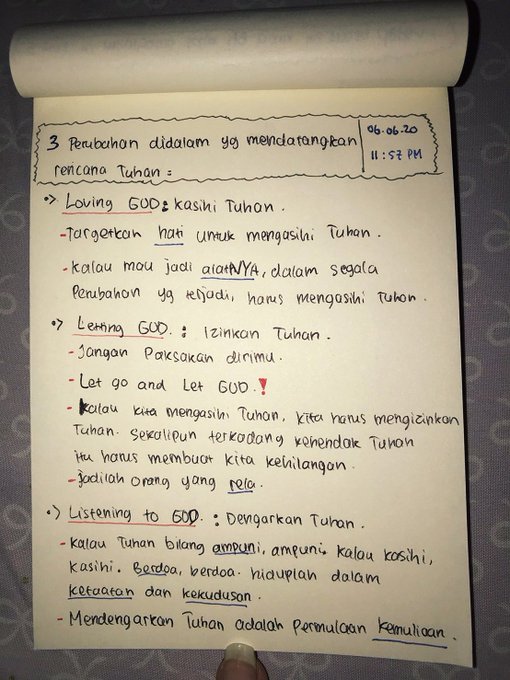 3 Perubahan didalam yg mendatangkan
rencana Tuhan :
06.06.20
11:57 PM
•> Loving GOD : kasihi Tuhan.
- Targetkan hati untuk mengasihi Tuhan.
- kalau mau jadi alatNYA, dalam segala
Perubahan yg terjadi, harus mengasihi Tuhan.
•> Letting GOD. : Izinkan Tuhan.
- Jangan Paksakan dirimu.
- Let go and Let GOD.!
- kalau kita mengasihi Tuhan, kita harus mengizinkan
Tuhan. Sekalipun terkadang kehendak Tuhan
itu harus membuat kita kehilangan.
- jadilah orang yang rela.
•> Listening to GOD. : Dengarkan Tuhan.
- kalau Tuhan bilang ampuni, ampuni. kalau kasihi,
kasihi. Berdoa, berdoa. hiduplah dalam
ketaatan dan kekudusan.
- Mendengarkan Tuhan adalah Permulaan kemuliaan.